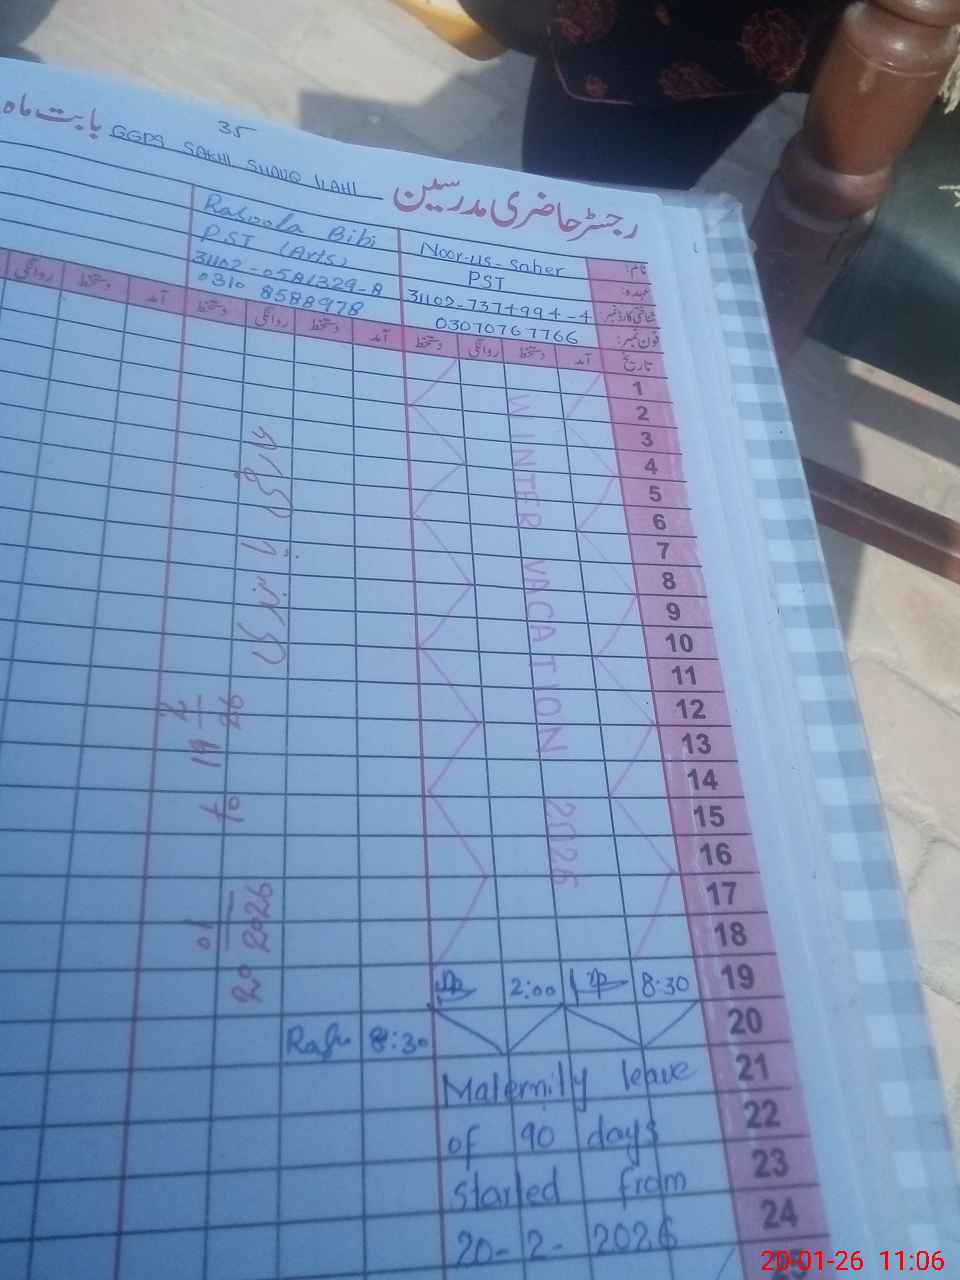 35
رجسٹر حاضری مدرسین GGPS SAKHI SHOUQ ILAHI بابت ماہ
نام: Noor-us-Saher Rasoola Bibi
عہدہ: PST PST (Arts)
شناختی کارڈ نمبر 31102-7374994-4 31102-0581329-8
فون نمبر: 03070767766 0310 8588978
تاریخ آمد دستخط روانگی دستخط آمد دستخط روانگی دستخط آمد دستخط روانگی
1
2
3
4
5
6
7
8
9
10
11
12
13
14
15
16
17
18
WINTER VACATION 2026
19 8:30 2:00
20 8:30
21
22
23
24
Maternilly leave
of 90 days
started from
20-2-2026
20 01 2026 to 19 2 26
20-01-26 11:06